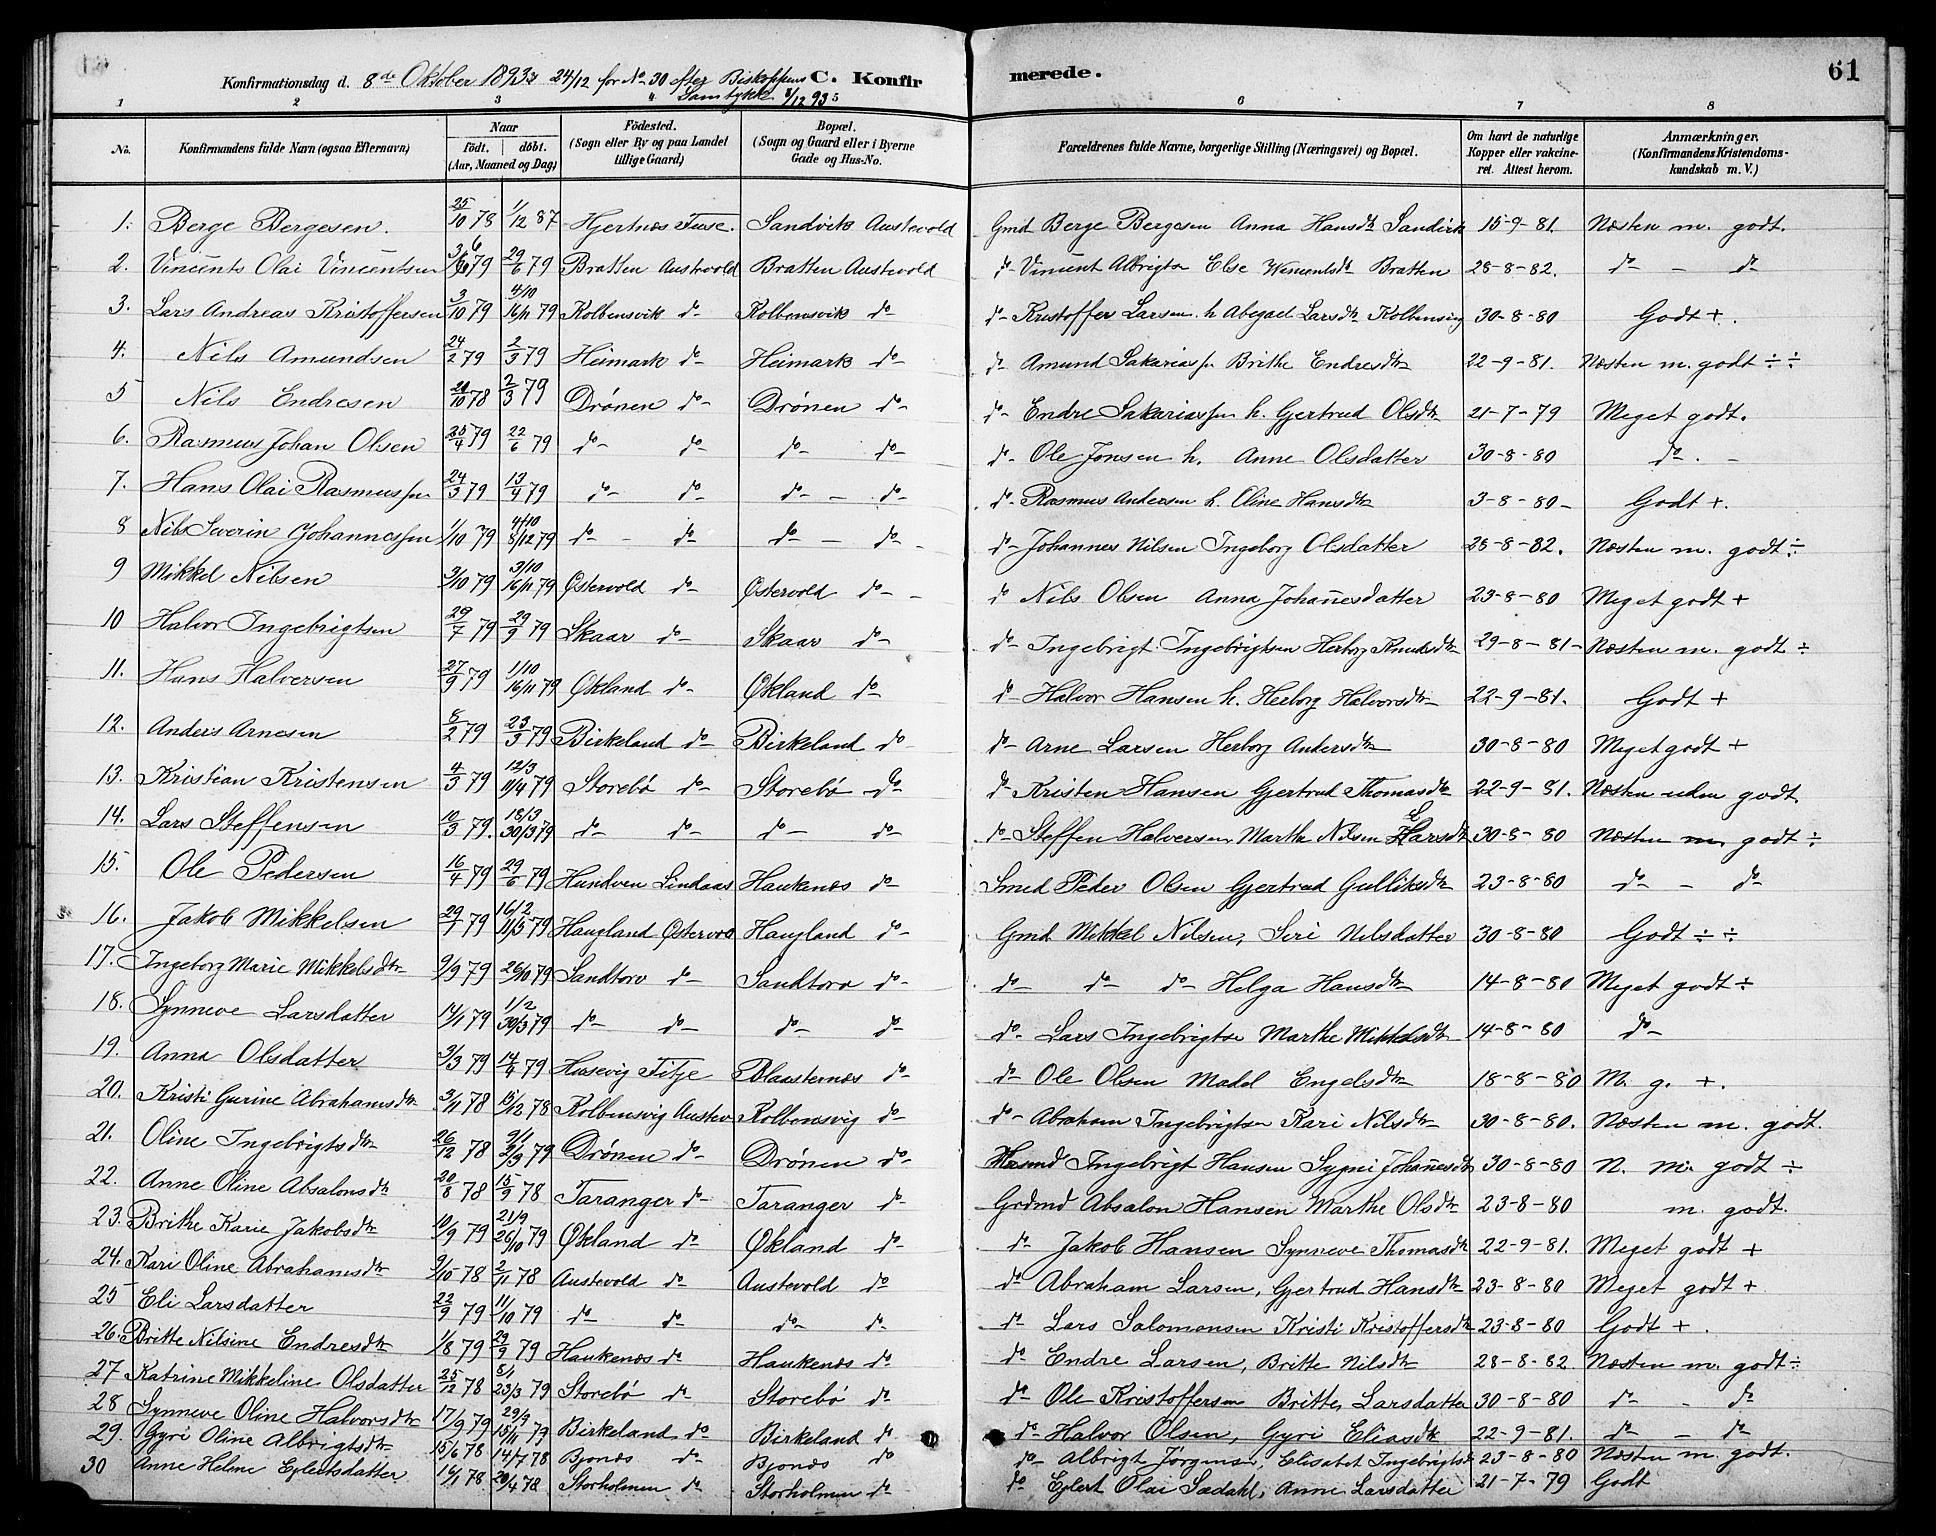 Konfirmationsdag d. 8de Oktober 1893 24/12 for No 30 efter Biskoppens Samtykke 8/12 93 C. Konfirmerede. 61
1 2 3 4 5 6 7 8
No. Konfirmandens fulde Navn (ogsaa Efternavn) Naar födt. döbt. (Aar, Maaned og Dag) Födested. (Sogn eller By og paa Landet tillige Gaard) Bopæl. (Sogn og Gaard eller i Byerne Gade og Hus-No. Forældrenes fulde Navne, borgerlige Stilling (Næringsvei) og Bopæl. Om havt de naturlige Kopper eller vakcineret. Attest herom. Anmærkninger. (Konfirmandens Kristendomskundskab m. V.)
1. Berge Bergesen. 25/10 78 1/12 87 Hjertnæs Fuse. Sandvik Austevold Gmd Berge Bergesen Anna Hansdtr Sandvik 15-9-81. Næsten m. godt.
2. Vincents Olai Vincentsen 79 29/6 79 Bratten Austevold Bratten Austevold do Vincent Albrigtsen Else Bratten 28-8-82. do - do
3. Lars Andreas Kristoffersen 3/10 79 4/10 16/11 79 Kolbensvik do Kolbensvik do do Kristoffer Larsen h. Abegael Larsdtr 30-8-80 Godt +.
4. Nils Amundsen 24/2 79 2/3 79 Heimark do Heimark do do Amund Sakariassen Brithe Endresdtr 22-9-81. Næsten m. godt ÷ ÷
5 Nils Endresen 21/10 78 2/3 79 Drönen do Drönen do do Endre Sakariassen h. Gjertrud Olsdtr 21-7-79 Meget godt.
6. Rasmus Johan Olsen 25/4 79 22/6 79 do do do do do Ole Jonsen h. Anne Olsdatter 30-8-80 do. -
7. Hans Olai Rasmussen 24/3 79 13/4 79 do do do - do do Rasmus Andersen h. Oline Hansdtr 3-8-80 - Godt +.
8 Nils Severin Johannessen 1/10 79 4/10 8/12 79 do - do do - do do Johannes Nilsen Ingeborg Olsdatter 28-8-82. Næsten m. godt ÷
9 Mikkel Nilsen 3/10 79 3/10 16/11 79 Østervold do Østervold do do Nils Olsen Anna Johannesdatter 23-8-80 Meget godt +
10 Halvor Ingebrigtsen 29/7 79 29/9 79 Skaar do Skaar do do Ingebrigt Ingebrigtsen Herborg Knudsdtr 29-8-81 - Næsten m. godt ÷
11. Hans Halversen 27/9 79 1/10 16/11 79 Økland do Økland do do Halvor Hansen h. Herborg Halvorsdtr 22-9-81. Godt +
12. Anders Arnesen 8/2 79 23/3 79 Birkeland do Birkeland do do Arne Larsen Herborg Andersdtr 30-8-80 Meget godt +
13. Kristian Kristensen 4/3 79 12/3 11/4 79 Storebö do Storebö do do Kristen Hansen Gjertrud Thomasdtr 22-9-81. Næsten uden godt.
14. Lars Steffensen 10/3 79. 18/3 30/3 79 do do do do do Steffen Halversen Marthe Nilsen 30-8-80 Næsten m. godt ÷
15. Ole Pedersen 16/4 79 29/6 79 Hundven Lindaas Haukenæs do Smed Peder Olsen Gjertrud Gulliksdtr 23-8-80 do - do
16. Jakob Mikkelsen 29/1 79 16/2 11/5 79 Haugland Østervold Haugland do Gmd Mikkel Nilsen, Siri Nilsdatter 30-8-80 Godt ÷ ÷
17. Ingeborg Marie Mikkelsdtr 9/9 79 26/10 79 Sandtorv do Sandtorv do do do do Helga Hansdtr 14-8-80 Meget godt ÷
18. Synneve Larsdatter 14/1 79 1/2 30/3 79 do do do do do Lars Ingebrigtsen Marthe Mikkelsdtr 14-8-80 do
19. Anna Olsdatter 3/3 79 14/4 79 Husevig Fitje Blaasternæs do do Ole Olsen Madel Engelsdtr 18-8-80 M. g. +.
20. Kristi Gurine Abrahamsdtr 3/11 78 15/12 78 Kolbensvig Austev. Kolbensvig do do Abraham Ingebrigtsen Kari Nilsdtr 30-8-80. Næsten m. godt.
21. Oline Ingebrigtsdtr 26/12 78 9/1 2/3 79 Drönen do Drönen do Husmd Ingebrigt Hansen Sygni Johannesdtr 30-8-80 N. m. godt ÷
22. Anne Oline Absalonsdtr 20/8 78 15/9 78 Taranger do Taranger do Grdmd Absalon Hansen Marthe Olsdtr 23-8-80 m. godt.
23. Brithe Karie Jakobsdtr 10/9 79 21/9 26/10 79 Økland do Økland do do Jakob Hansen Synneve Thomasdtr 22-9-81. Meget godt +
24. Kari Oline Abrahamsdtr 9/10 78 2/11 78 Austevold do Austevold do do Abraham Larsen, Gjertrud Hansdtr 23-8-80 Meget godt +
25 Eli Larsdatter 22/9 79 11/10 79 do do do do do Lars Salomonsen Kristi Kristoffersdtr 23-8-80 Godt +.
26. Britte Nilsine Endresdtr 1/8 79 29/9 79 Haukenæs do Haukenæs do do Endre Larsen, Britte Nilsdtr 28-8-82. Næsten m. godt ÷
27 Katrine Mikkeline Olsdatter 25/12 78 5/1 23/3 79 Storebö do Storebö do do Ole Kristoffersen Britte Larsdatter 30-8-80 do - do
28 Synneve Oline Halvorsdtr 17/9 79 29/9 15/11 79 Birkeland do Birkeland do do Halvor Olsen, Gyri Eliasdtr 22-9-81. do - do
29. Gyri Oline Albrigtsdtr 15/6 78 14/7 78 Bjonæs do Bjonæs do do Albrigt Jörgensen, Elisabet Ingebrigtsd. 23-8-80 Næsten m. godt.
30 Anne Helene Eglertsdatter 14/1 78. 20/4 78 Storholmen do Storholmen do do Eglert Olai Sædahl, Anne Larsdatter 21-7-79 Godt